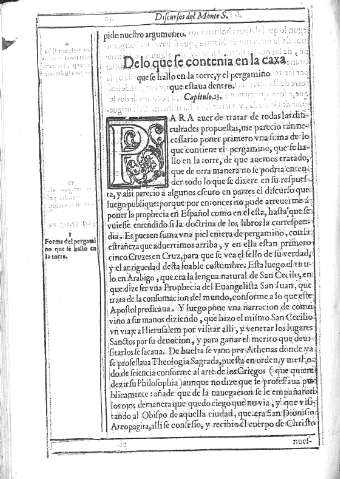 Discursos del Monte S.
pide nuestro argumento.
De lo que se contenia en la caxa
que se hallo en la torre, y el pergamino
que estaua dentro.
Capitulo. 23.
PARA auer de tratar de todas las difi
cultades propuestas, me parecio ser nece
cessario poner primero vna suma de lo
que contiene el pergamino, que se ha-
llo en la torre, de que auemos tratado,
que de otra manera no se podria enten
der todo lo que se dixere en su respues
ta, y assi parecio a algunos oscuro en partes el discurso que
luego publique: porque por entonces no pude atreuerme à
poner la prophecia en Español como en el esta, hasta que se
viesse entendido si la doctrina de los libros la correspon-
dia. Es pues en suma vna piel entera de pergamino, con la
estrañeza que aduertimos arriba, y en ella estan primero
cinco Cruzes en Cruz, para que se vea el sello de su verdad,
y el antiguedad desta loable costumbre: Esta luego el titu
lo en Arabigo, que era la lengua natural de San Cecilio, en
que dize ser vna Prophecia del Euangelista San Iuan, que
trata de la consumacion del mundo, conforme a lo que este
Apostol predicaua. Y luego pone vna narracion de como
vino a sus manos diziendo, que hizo el mismo San Cecilio
vn viaje a Hierusalem por visitar alli, y venerar los lugares
Sanctos por su deuocion, y para ganar el merito que de vi-
sitarlos se sacaua. De buelta se vino por Athenas donde ya
se professaua Theologia Sagrada, puesta en orden, y metho
do de sciencia conforme al arte de los Griegos (que quiere
dezir su Philosophia) aunque no dize que se professaua pu
blicamente: añade que de la nauegacion se le empañaron
los ojos de manera que quedo ciego que no via, y que visi
tando al Obispo de aquella ciudad, que era San Dionisio
Areopagita, alli se confesso, y recibio el cuerpo de Christo
nues-
Forma del pergami
no que se hallo en
la torre.